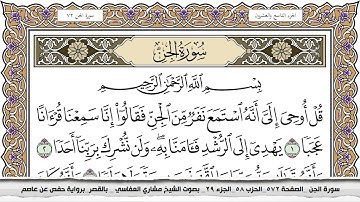 الجزء التاسع والعشرون
سورة الجن ٧٢
سُورَةُ الجِنِّ
بِسْمِ اللَّهِ الرَّحْمَٰنِ الرَّحِيمِ
قُلْ أُوحِيَ إِلَيَّ أَنَّهُ ٱسْتَمَعَ نَفَرٌ مِّنَ ٱلْجِنِّ فَقَالُوٓا۟ إِنَّا سَمِعْنَا قُرْءَانًا
عَجَبًا ١ يَهْدِىٓ إِلَى ٱلرُّشْدِ فَـَٔامَنَّا بِهِۦ وَلَن نُّشْرِكَ بِرَبِّنَآ أَحَدًا ٢
سورة الجن . الصفحة ٥٧٢ . الحزب ٥٨ . الجزء ٢٩ . بصوت الشيخ مشاري العفاسي . بالقصر . برواية حفص عن عاصم